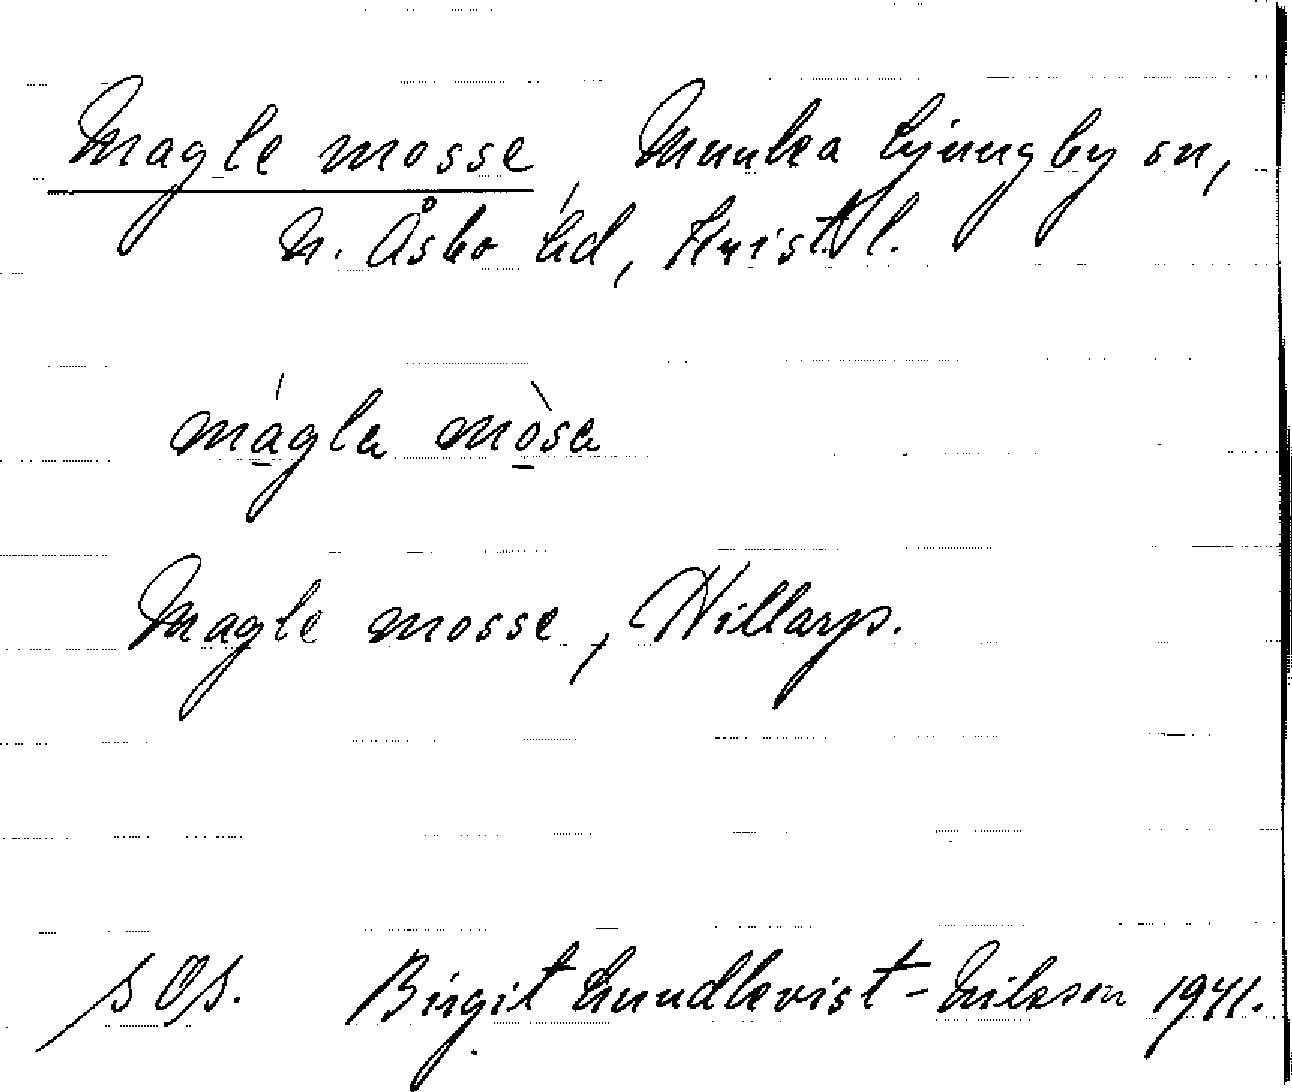 Magle mosse, Munka Ljungby sn,
N. Åsbo hd, Krist. l.
mágla mòsa
Magle mosse, Hillarp.
SOS. Birgit Lundkvist-Nilsson 1941.